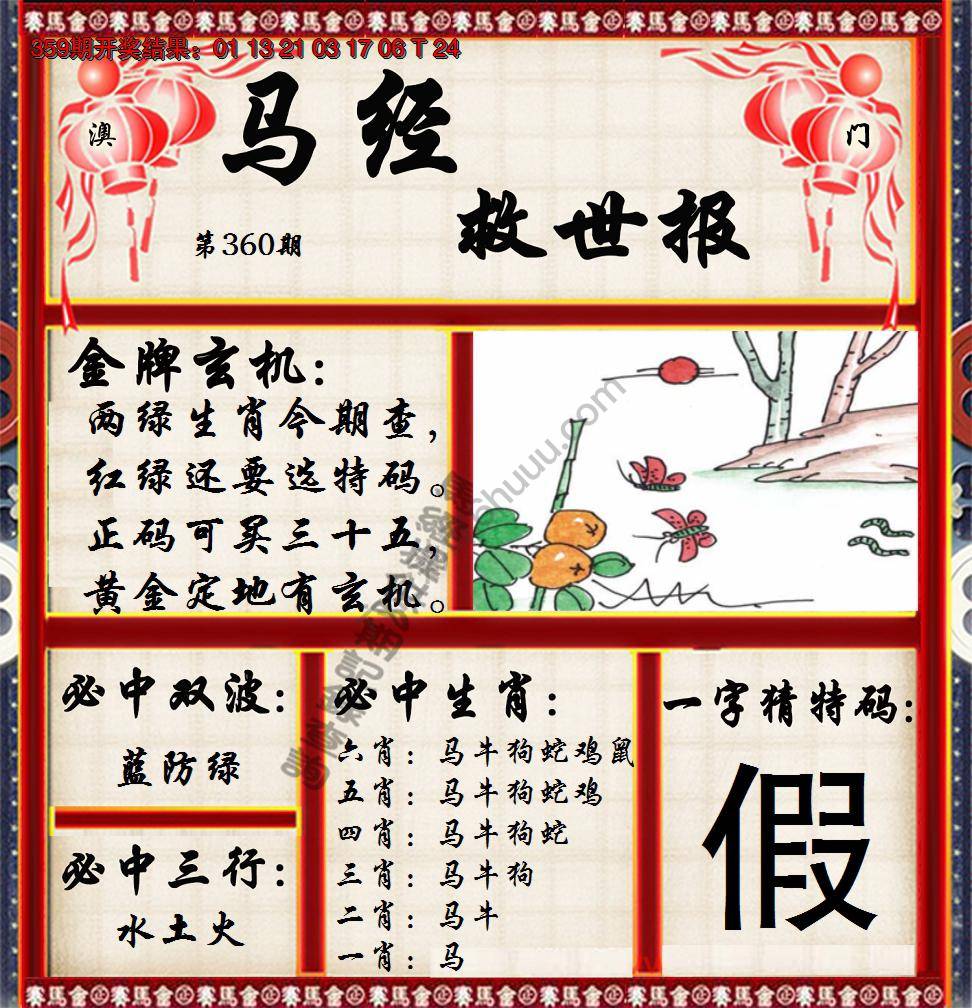 359期开奖结果：01 13 21 03 17 06 T 24
澳
门
马经
救世报
第360期
金牌玄机：
两绿生肖今期查，
红绿还要选特码。
正码可买三十五，
黄金定地有玄机。
必中双波：
蓝防绿
必中三行：
水土火
必中生肖：
六肖：马牛狗蛇鸡鼠
五肖：马牛狗蛇鸡
四肖：马牛狗蛇
三肖：马牛狗
二肖：马牛
一肖：马
一字猜特码：
假